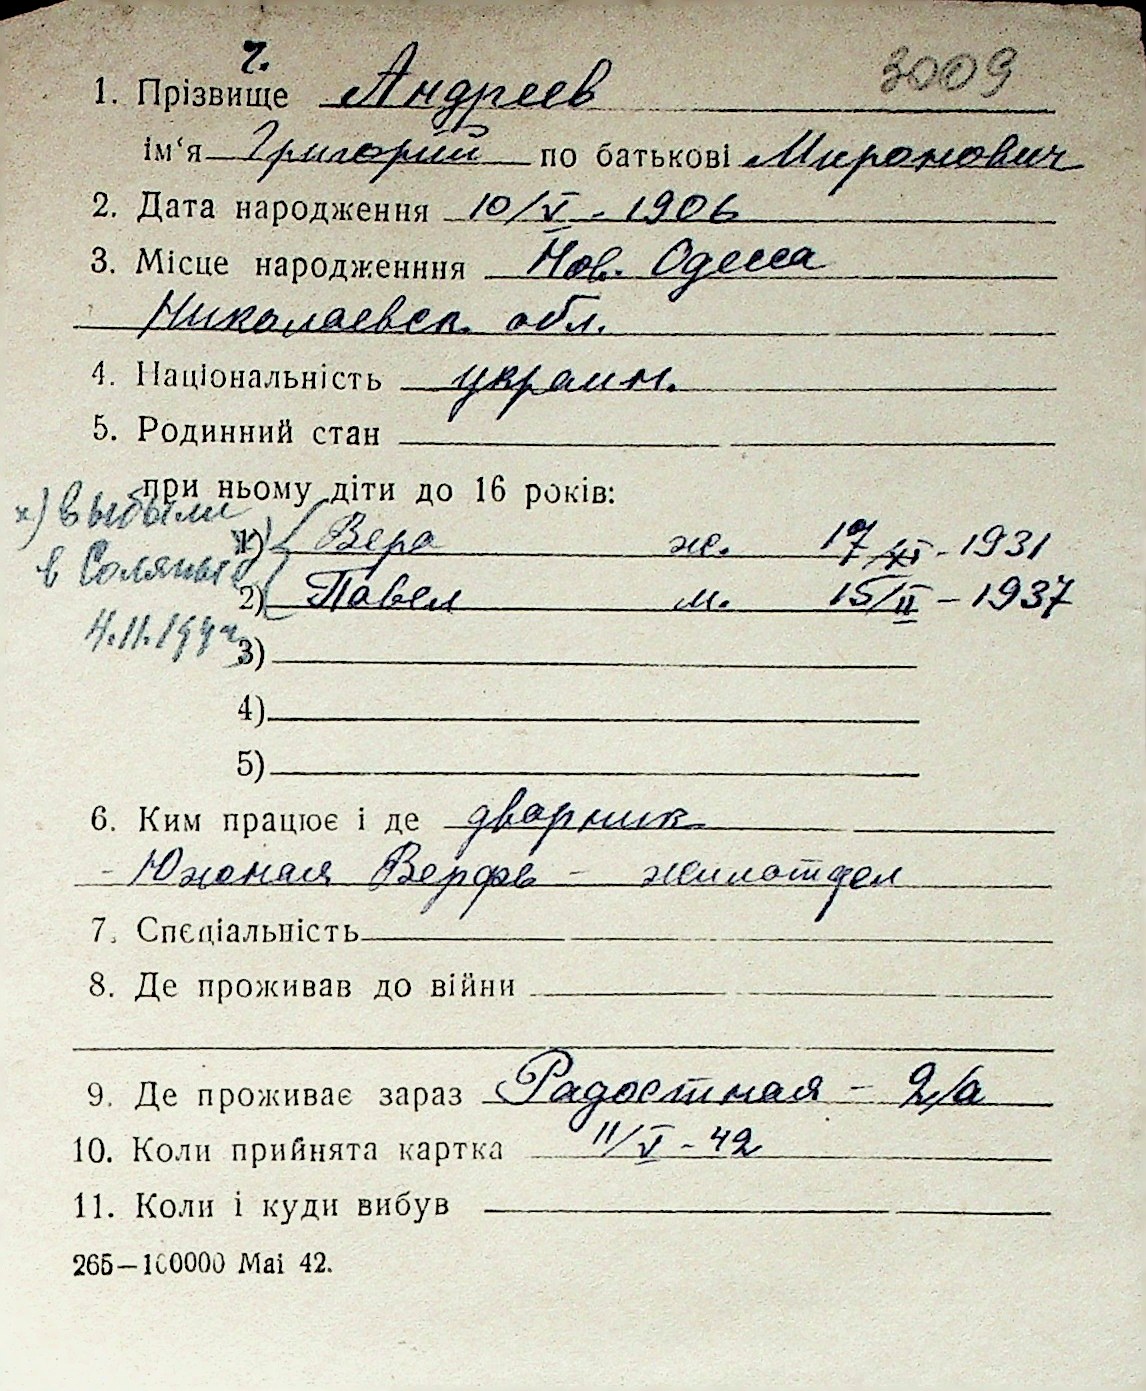 ч. 3009
1. Прізвище Андреев
ім‘я Григорий по батькові Миронович
2. Дата народження 10/V - 1906
3. Місце народженння Нов. Одесса
Николаевск. обл.
4. Національність украин.
5. Родинний стан
при ньому діти до 16 років:
х) выбыли
1) Вера ж. 17/XI - 1931
в Соляные
2) Павел м. 15/II - 1937
4.11.1942
3)
4)
5)
6. Ким працює і де дворник
- Южная Верфь - жилотдел
7. Спеціальність
8. Де проживав до війни
9. Де проживає зараз Радостная - 2/а
10. Коли прийнята картка 11/V - 42
11. Коли і куди вибув
265—100000 Маі 42.